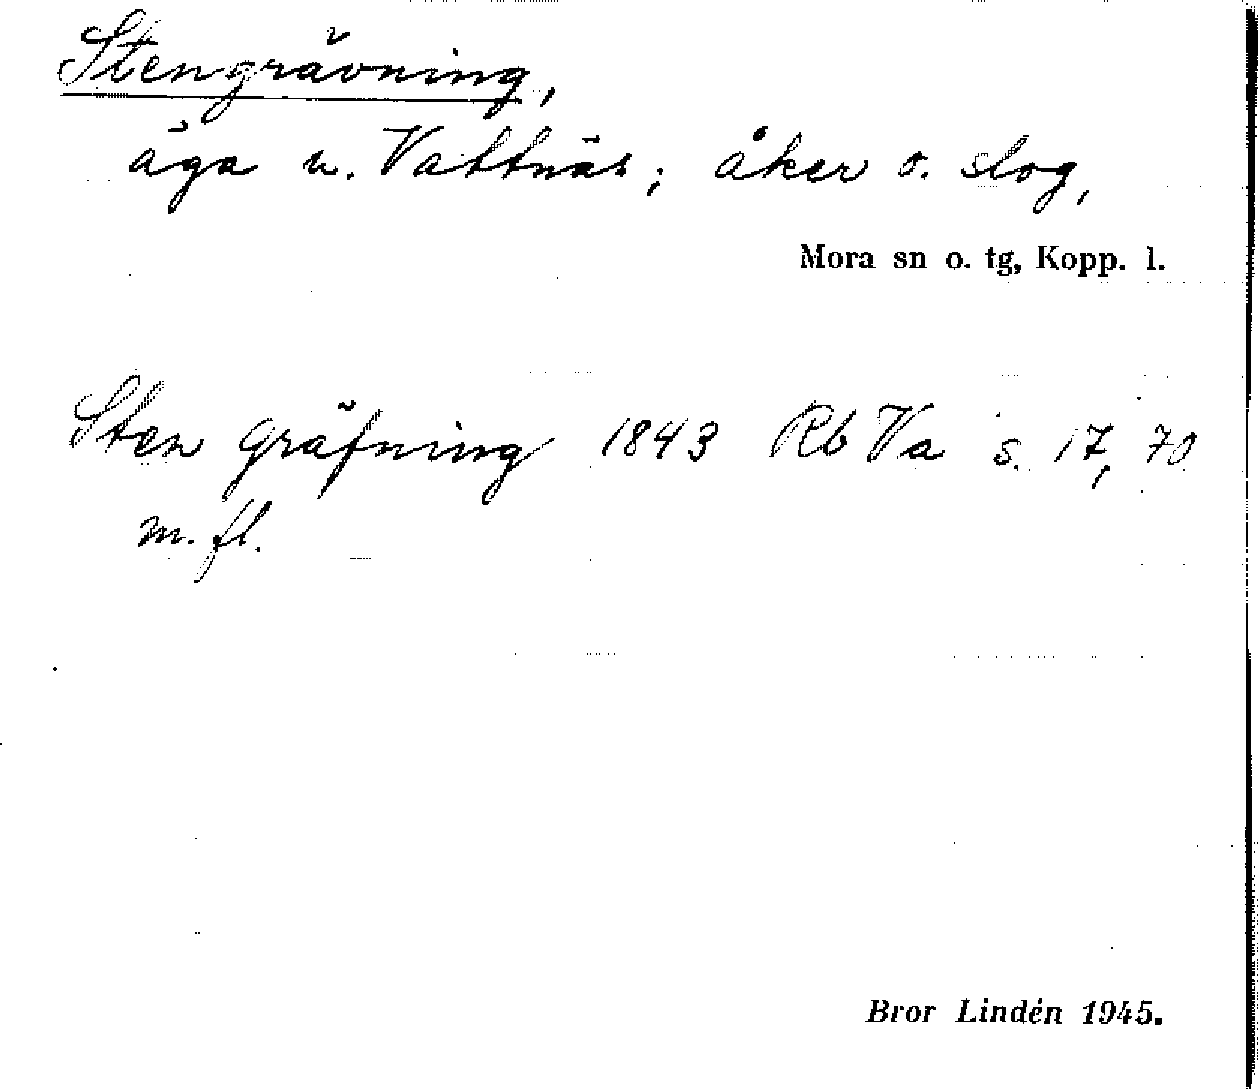 Stengrävning,
äga u. Vattnäs; åker o. slog,
Mora sn o. tg, Kopp. l.
Sten gräfning 1843 Rb Va s. 17, 70
m. fl.
Bror Lindén 1945.